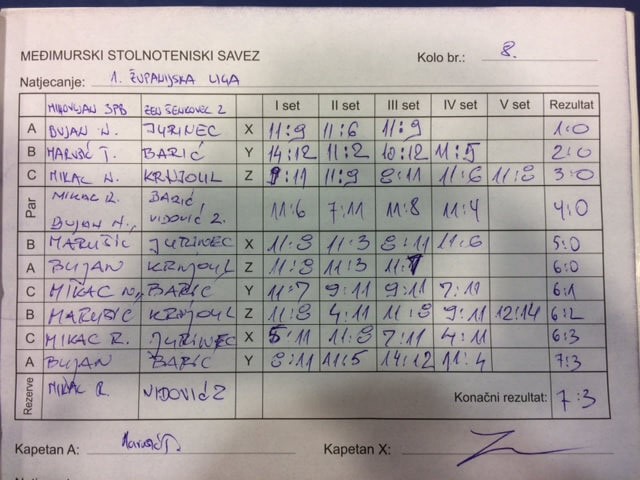 MEĐIMURSKI STOLNOTENISKI SAVEZ Kolo br.: 8.
Natjecanje: 1. ŽUPANIJSKA LIGA
MIHOVLJAN SPB ZEO ŠENKOVEC 2 I set II set III set IV set V set Rezultat
A BUJAN N. JURINEC X 11:9 11:6 11:9 1:0
B MARUŠIĆ T. BARIĆ Y 14:12 11:2 10:12 11:5 2:0
C MIKAC N. KRNJOUL Z 9:11 11:9 8:11 11:6 11:8 3:0
Par MIKAC R. BARIĆ, 11:6 7:11 11:8 11:4 4:0
BUJAN N., VIDOVIĆ Z.
B MARUŠIĆ JURINEC X 11:8 11:3 8:11 11:6 5:0
A BUJAN KRNJOUL Z 11:8 11:3 11:7 6:0
C MIKAC N., BARIĆ Y 11:7 9:11 9:11 7:11 6:1
B MARUŠIĆ KRNJOUL Z 11:8 4:11 11:8 9:11 12:14 6:2
C MIKAC R. JURINEC X 5:11 11:8 7:11 4:11 6:3
A BUJAN BARIĆ Y 8:11 11:5 14:12 11:4 7:3
Rezerve MIKAC R. VIDOVIĆ Z Konačni rezultat: 7:3
Kapetan A: Marušić T. Kapetan X: